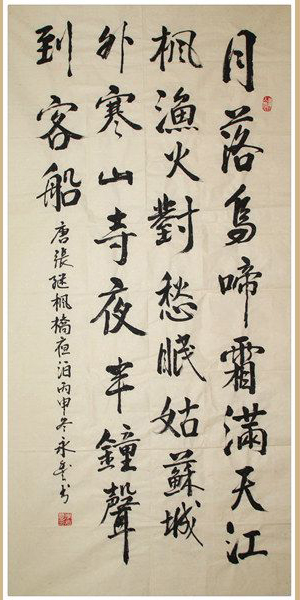 月落烏啼霜滿天江
楓漁火對愁眠姑蘇城
外寒山寺夜半鐘聲
到客船
唐張継楓橋夜泊丙申冬永